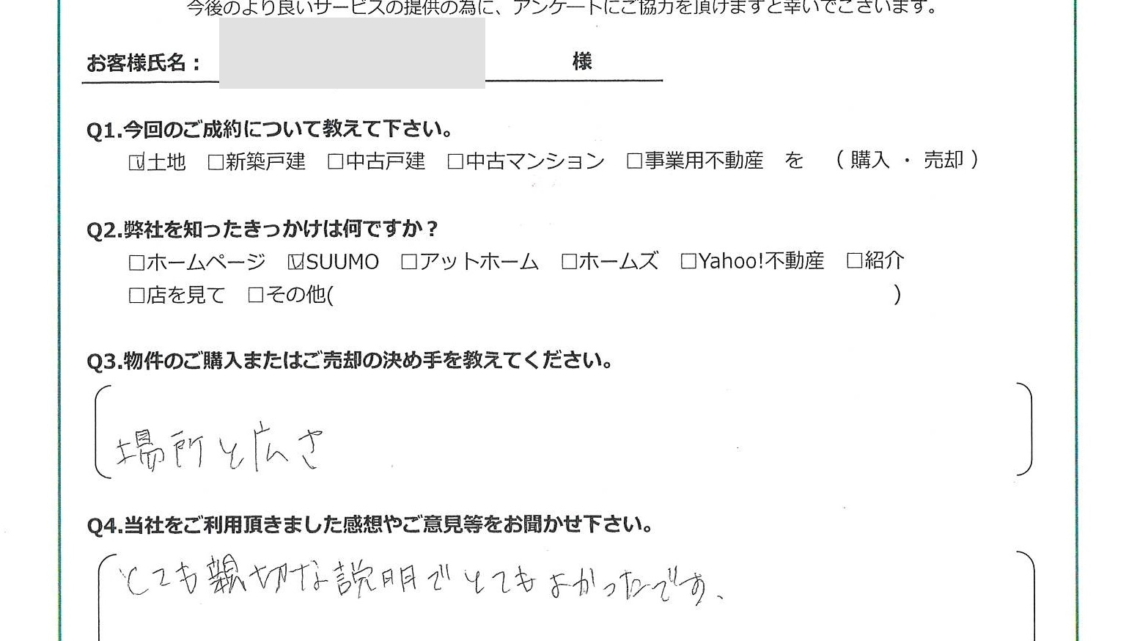 今後のより良いサービスの提供の為に、アンケートにご協力を頂けますと幸いでございます。
お客様氏名： 様
Q1.今回のご成約について教えて下さい。
☑土地 □新築戸建 □中古戸建 □中古マンション □事業用不動産 を （ 購入 ・ 売却 ）
Q2.弊社を知ったきっかけは何ですか？
□ホームページ ☑SUUMO □アットホーム □ホームズ □Yahoo!不動産 □紹介
□店を見て □その他( )
Q3.物件のご購入またはご売却の決め手を教えてください。
場所と広さ
Q4.当社をご利用頂きました感想やご意見等をお聞かせ下さい。
とても親切な説明でとてもよかったです、